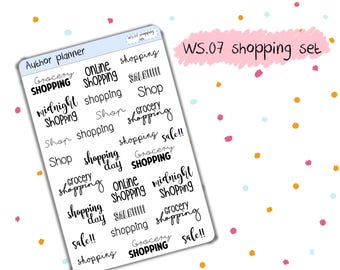 WS.07 shopping set
Author planner
Grocery
SHOPPING
online
shopping
shopping
midnight
shopping
shopping
SALE!!!!!
Shop
Shop
shopping
grocery
shopping
Shop
shopping
day
shopping
sale!!
Grocery
SHOPPING
grocery
shopping
online
shopping
midnight
shopping
shopping
day
SALE!!!!!
grocery
shopping
shopping
sale!!
shopping
Grocery
SHOPPING
sale!!